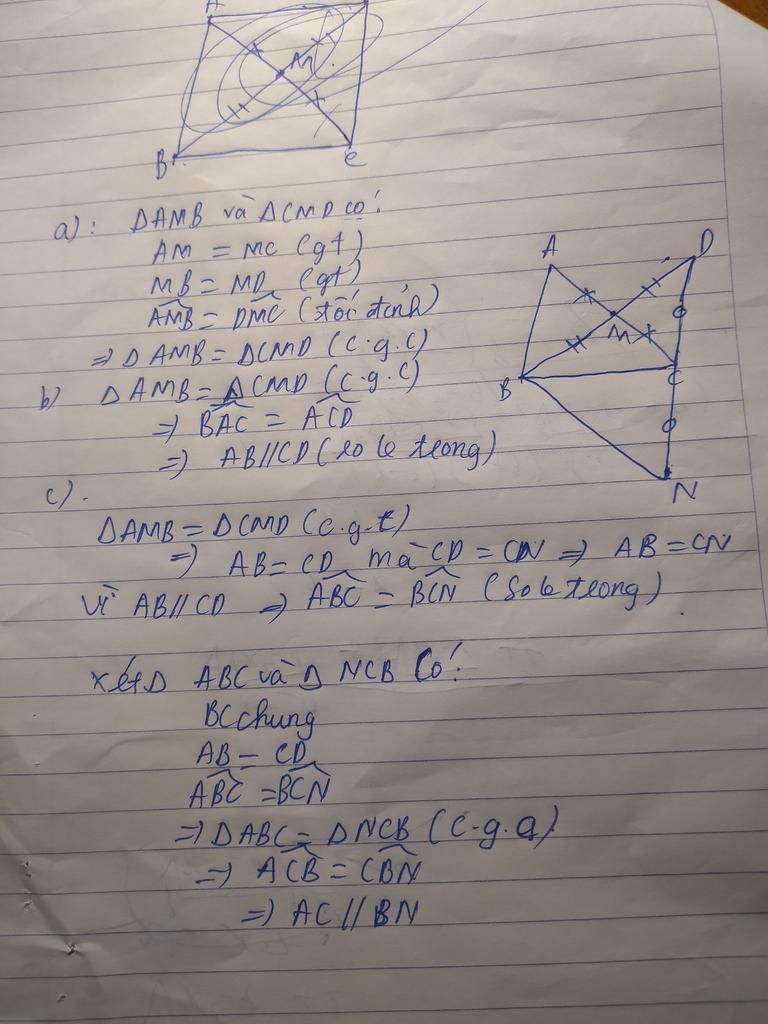 A
M
B
C
a): ΔAMB và ΔCMD có:
AM = MC (gt)
MB = MD (gt)
AMB = DMC (đối đỉnh)
=> ΔAMB = ΔCMD (c.g.c)
b) ΔAMB = ΔCMD (c.g.c)
=> BAC = ACD
=> AB//CD (so le trong)
A
D
M
B
C
N
c).
ΔAMB = ΔCMD (c.g.t)
=> AB = CD mà CD = CN => AB = CN
Vì AB//CD => ABC = BCN (So le trong)
xét Δ ABC và Δ NCB Có:
BC chung
AB = CD
ABC = BCN
=> ΔABC = ΔNCB (c.g.c)
=> ACB = CBN
=> AC // BN